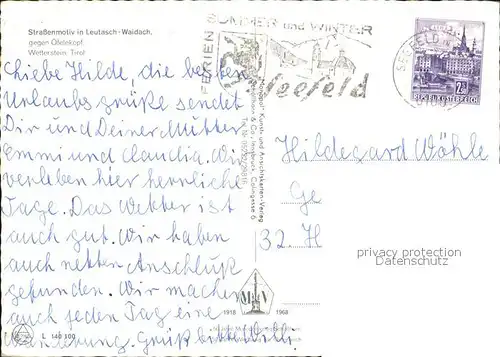 Straßenmotiv in Leutasch-Waidach,
gegen Öfelekopf,
Wetterstein, Tirol
FERIEN SOMMER und WINTER
Seefeld
SEEFELD
REPUBLIK ÖSTERREICH
Liebe Hilde, die besten
Urlaubsgrüße sendet
Dir und Deiner Mutter
Emmi und Claudia. Wir
verleben hier herrliche
Tage. Das Wetter ist
auch gut. Wir haben
auch netten Anschluß
gefunden. Wir machen
auch jeden Tag eine
Wanderung. Grüß bitte Willi
"Monopol" Kunst- und Ansichtskarten-Verlag
& Co., Innsbruck, Colingasse 6
Hildegard Wöhle
Ge
32. H
privacy protection
Datenschutz
M V
1918 1968
L 140 100